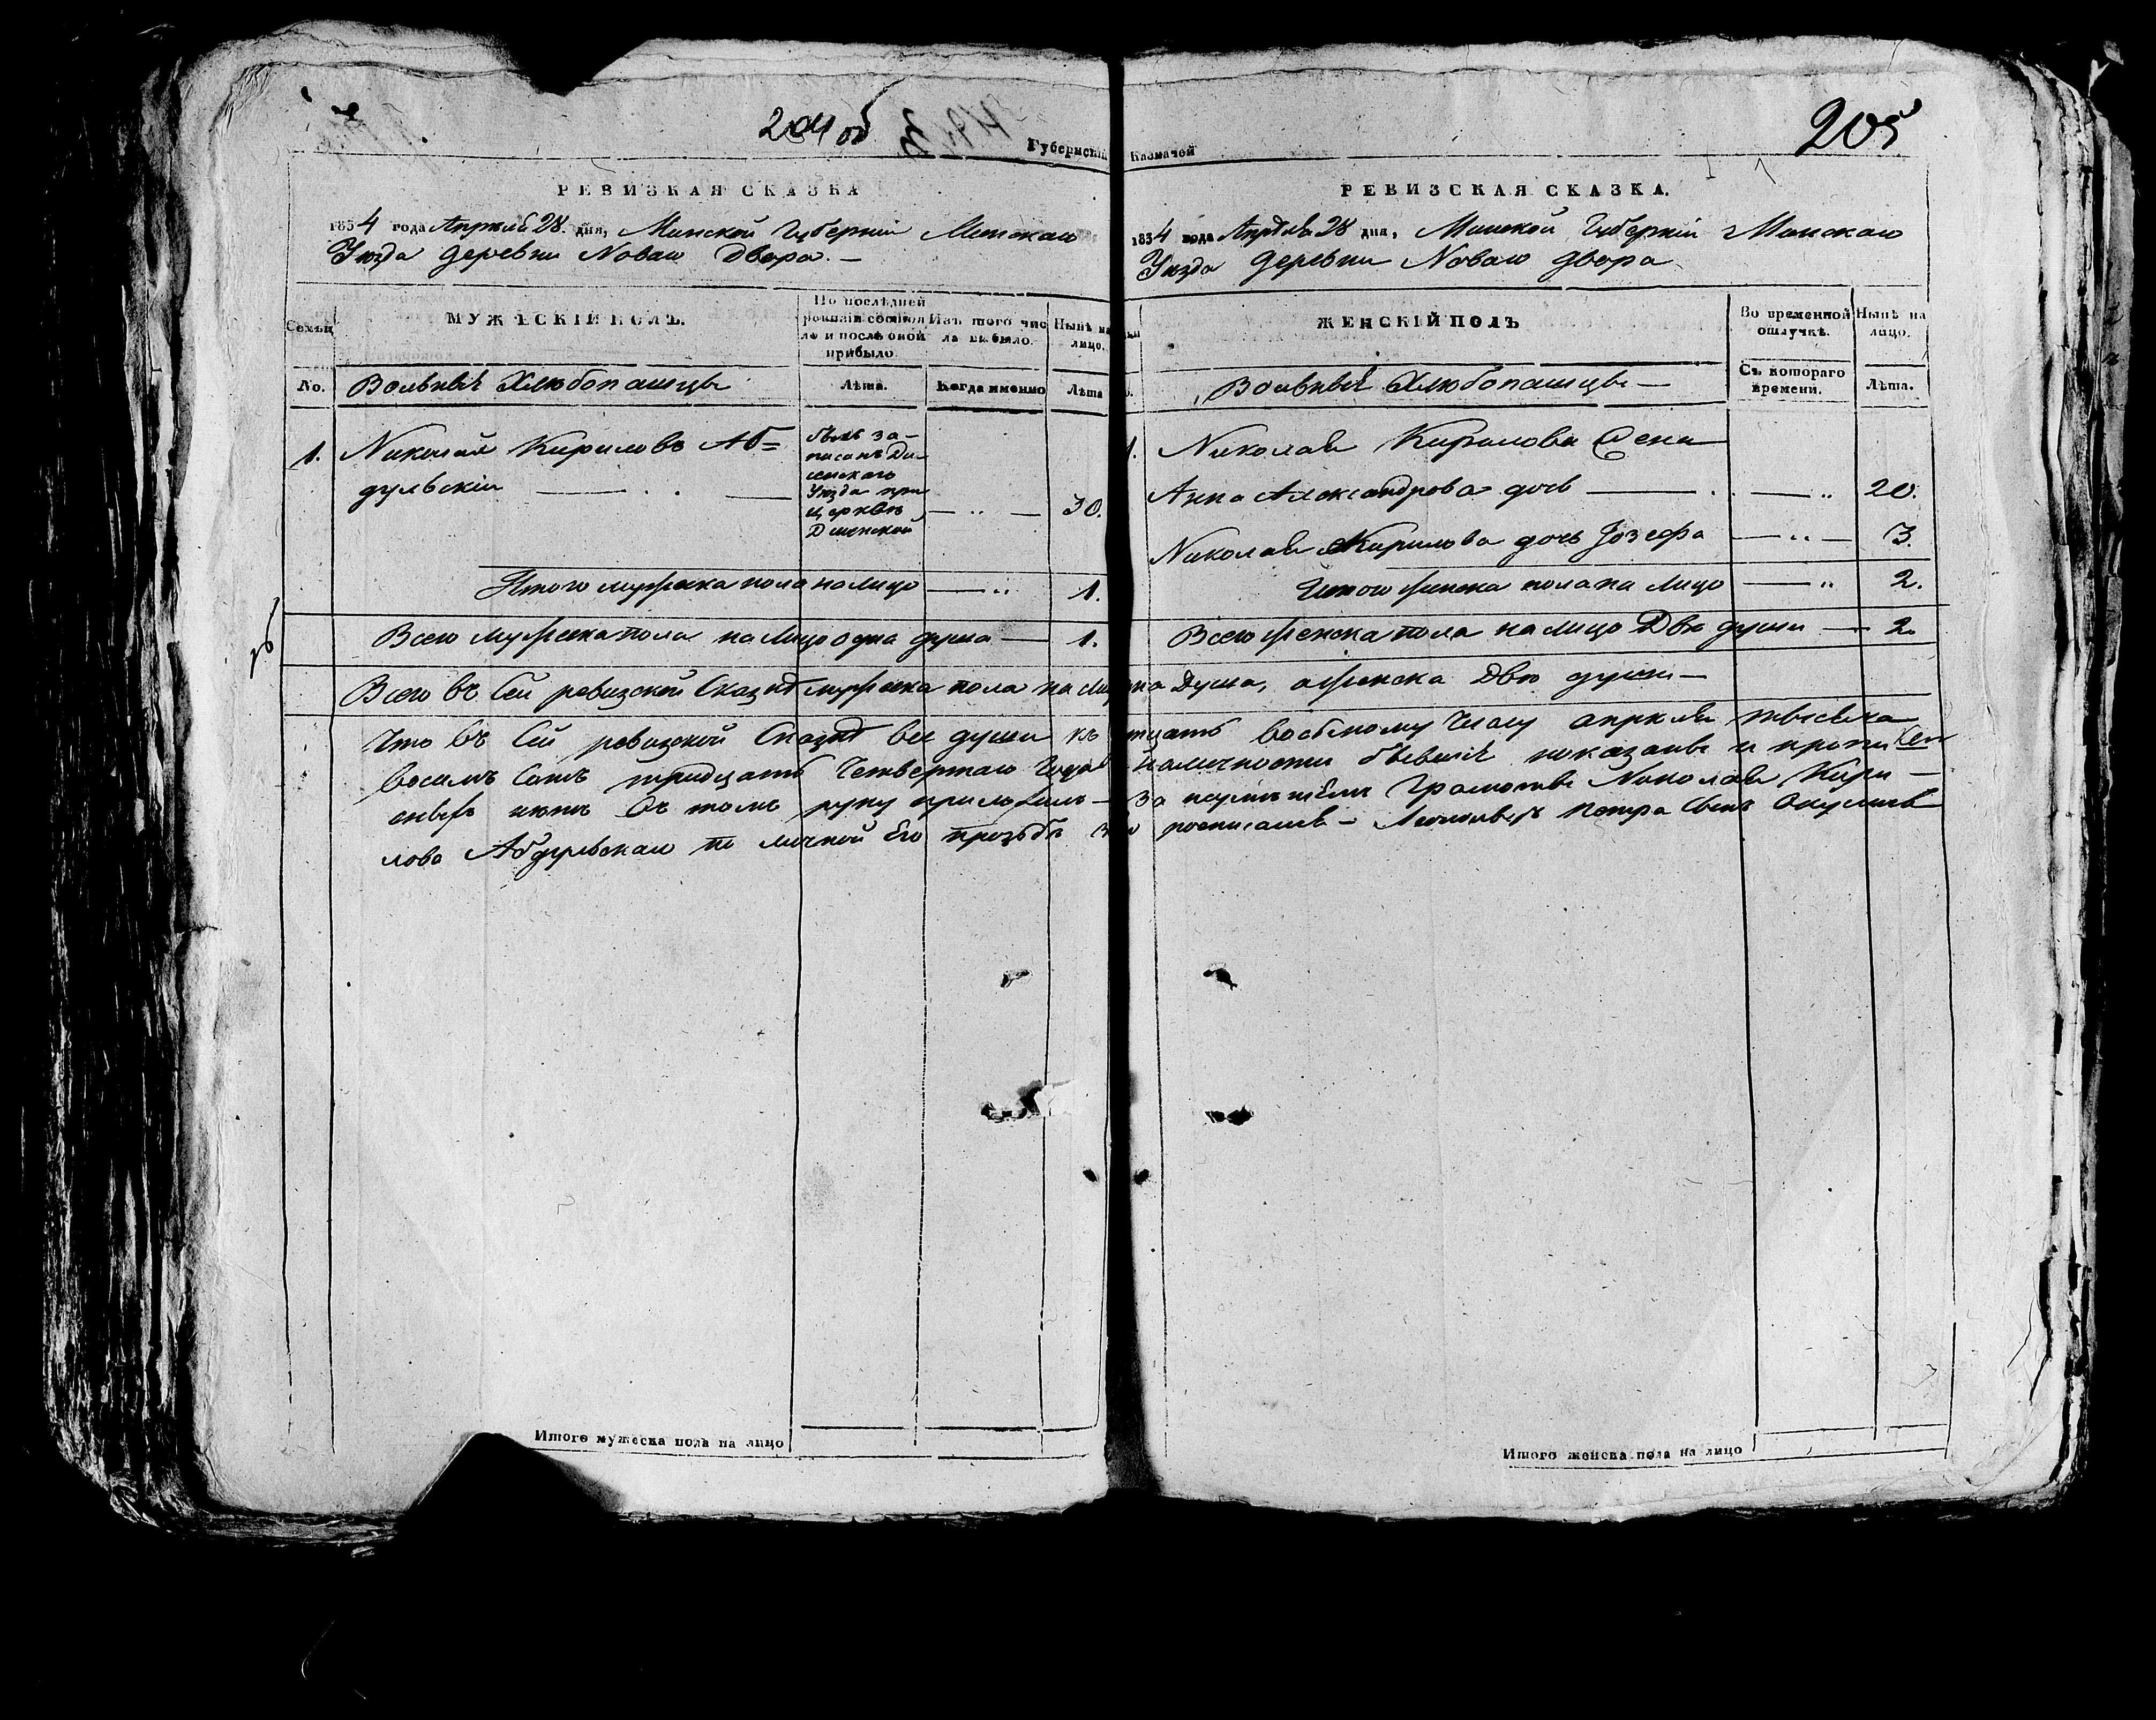 204 об
Губернскій
РЕВИЗКАЯ СКАЗКА
1834 года Апреля 28. дня, Минской Губерніи Минскаго
Уѣзда деревни Новаго Двора. —
Семьи
МУЖЕСКІЙ ПОЛЪ.
По послѣдней
ревизіи состоял
ло и послѣ оной
прибыло
Изъ того чис
ла выбыло.
Нынѣ на
лицо.
No.
Вольныѣ Хлѣбопашцы
Лѣта.
Когда именно
Лѣта
1.
Николай Кириловъ Аб=
дульскій
былъ за-
писанъ Ди-
сенскаго
Уѣзда при
церквѣ
30.
Итого мужеска пола на лицо — 1.
Всего мужеска пола на лицо одна душа — 1.
Казначей
205
РЕВИЗСКАЯ СКАЗКА.
1834 года Апрѣля 28 дна, Минской Губерніи Минскаго
Уѣзда деревни Новаго двора
ЖЕНСКІЙ ПОЛЪ
Во временной
отлучкѣ.
Нынѣ на
лицо.
Вольныѣ Хлѣбопашцы —
Съ котораго
времени.
Лѣта.
1.
Николая Кирилова Жена
Анна Александрова дочь — 20.
Николая Кирилова дочь Іозефа — 3.
Итого женска пола на лицо — 2.
Всего женска пола на лицо Двѣ души — 2.
Всего въ Сей ревизской Сказкѣ мужеска пола на душа, а женска Двѣ души —
Что въ Сей ревизской Сказкѣ все души къ восьмому Числу апрѣля тысяча
восемъ Сотъ тридцать Четвертаго Года наличности бывшіе показаны и пропи
нѣтъ въ томъ руку приложилъ — За неумѣніемъ Грамоты Николая Кири —
лова Абдульскаго по личной Его прозьбѣ росписался — Петра Сынъ
Итого мужеска пола на лицо
Итого женска пола на лицо